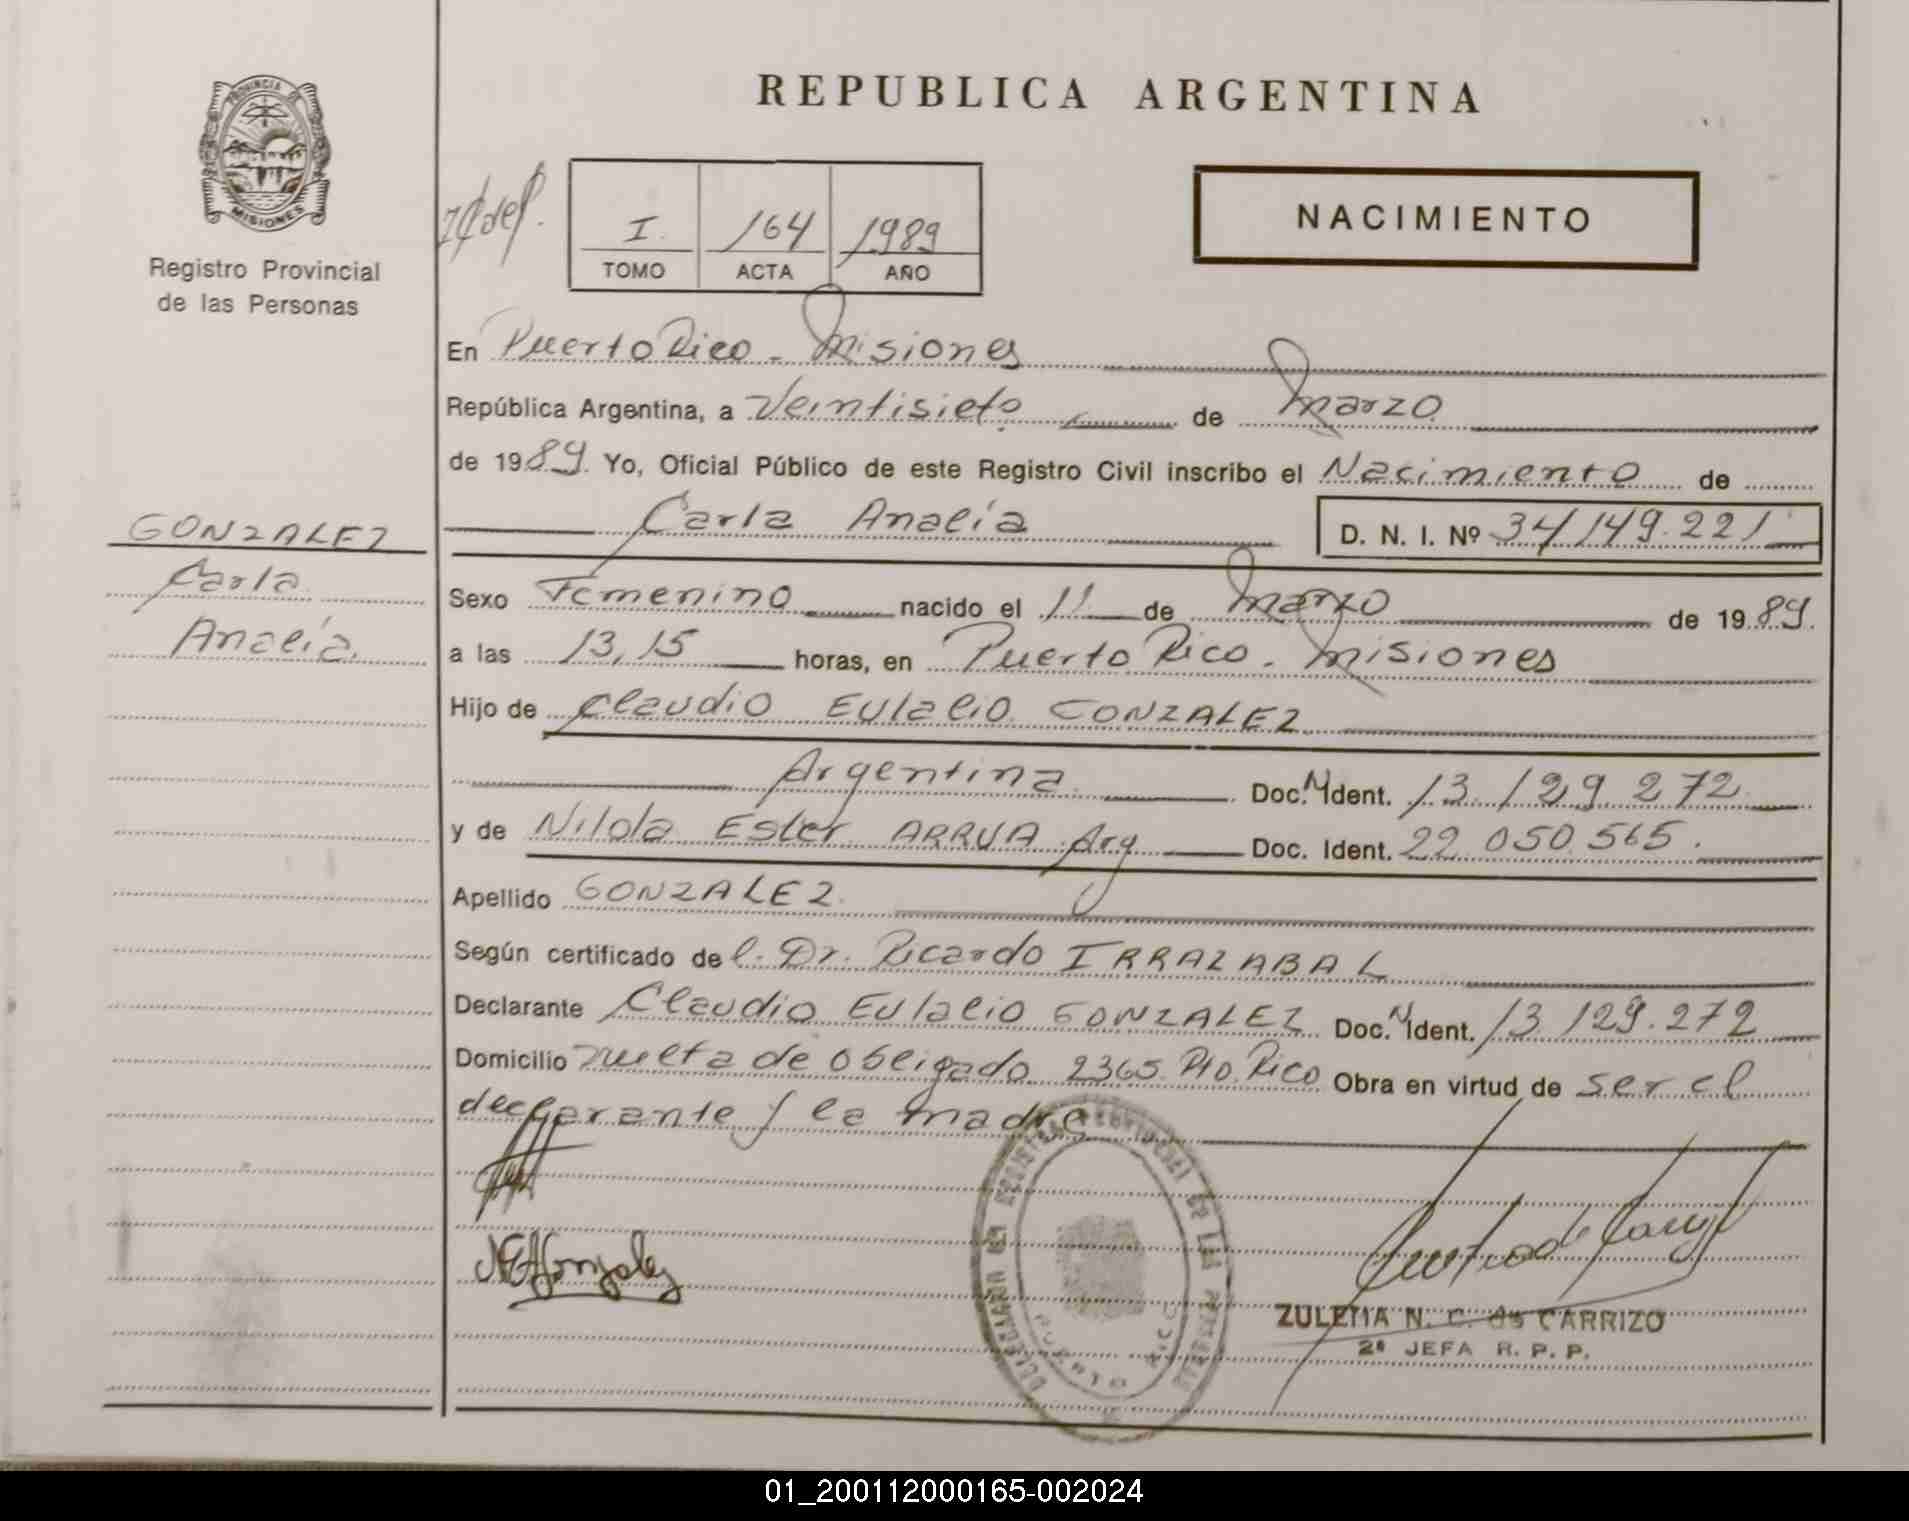 REPUBLICA ARGENTINA
PROVINCIA DE
MISIONES
Registro Provincial
de las Personas
I 164 1989
TOMO ACTA AÑO
NACIMIENTO
En Puerto Rico - Misiones
República Argentina, a Veintisiete de Marzo
de 1989 Yo, Oficial Público de este Registro Civil inscribo el Nacimiento de
Carla Analía D. N. I. Nº 34.149.221
GONZALEZ
Carla
Analía
Sexo Femenino nacido el 11 de Marzo de 1989
a las 13,15 horas, en Puerto Rico - Misiones
Hijo de Claudio Eulalio GONZALEZ
Argentina Doc. N Ident. 13.129.272
y de Nilda Ester ARRUA Arg Doc. Ident. 22.050.565.
Apellido GONZALEZ
Según certificado del Dr. Ricardo IRRAZABAL
Declarante Claudio Eulalio GONZALEZ Doc. N Ident. 13.129.272
Domicilio Vuelta de Obligado 2365 Pto. Rico Obra en virtud de ser el
declarante y la madre
DELEGACION DEL REGISTRO PROVINCIAL DE LAS PERSONAS
PUERTO RICO
NEAGonzalez
ZULEMA N. C. de CARRIZO
2ª JEFA R. P. P.
01_200112000165-002024